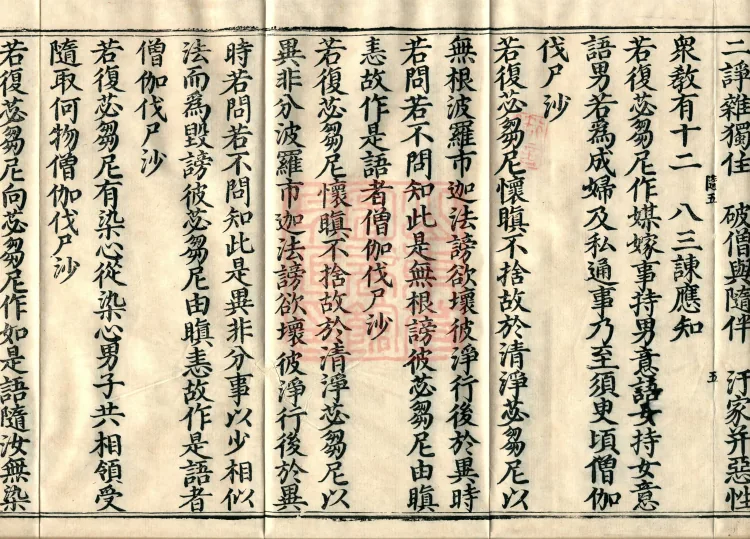 二諍雜獨住　破僧與隨伴　汙家并惡性
衆教有十二　八三諫應知
陸五
五
若復苾芻尼作媒嫁事持男意語女持女意
語男若爲成婦及私通事乃至須臾頃僧伽
伐尸沙
若復苾芻尼懷瞋不捨故於清淨苾芻尼以
無根波羅市迦法謗欲壞彼淨行後於異時
若問若不問知此是無根謗彼苾芻尼由瞋
恚故作是語者僧伽伐尸沙
若復苾芻尼懷瞋不捨故於清淨苾芻尼以
異非分波羅市迦法謗欲壞彼淨行後於異
時若問若不問知此是異非分事以少相似
法而爲毀謗彼苾芻尼由瞋恚故作是語者
僧伽伐尸沙
若復苾芻尼有染心從染心男子共相領受
隨取何物僧伽伐尸沙
若復苾芻尼向苾芻尼作如是語隨汝無染